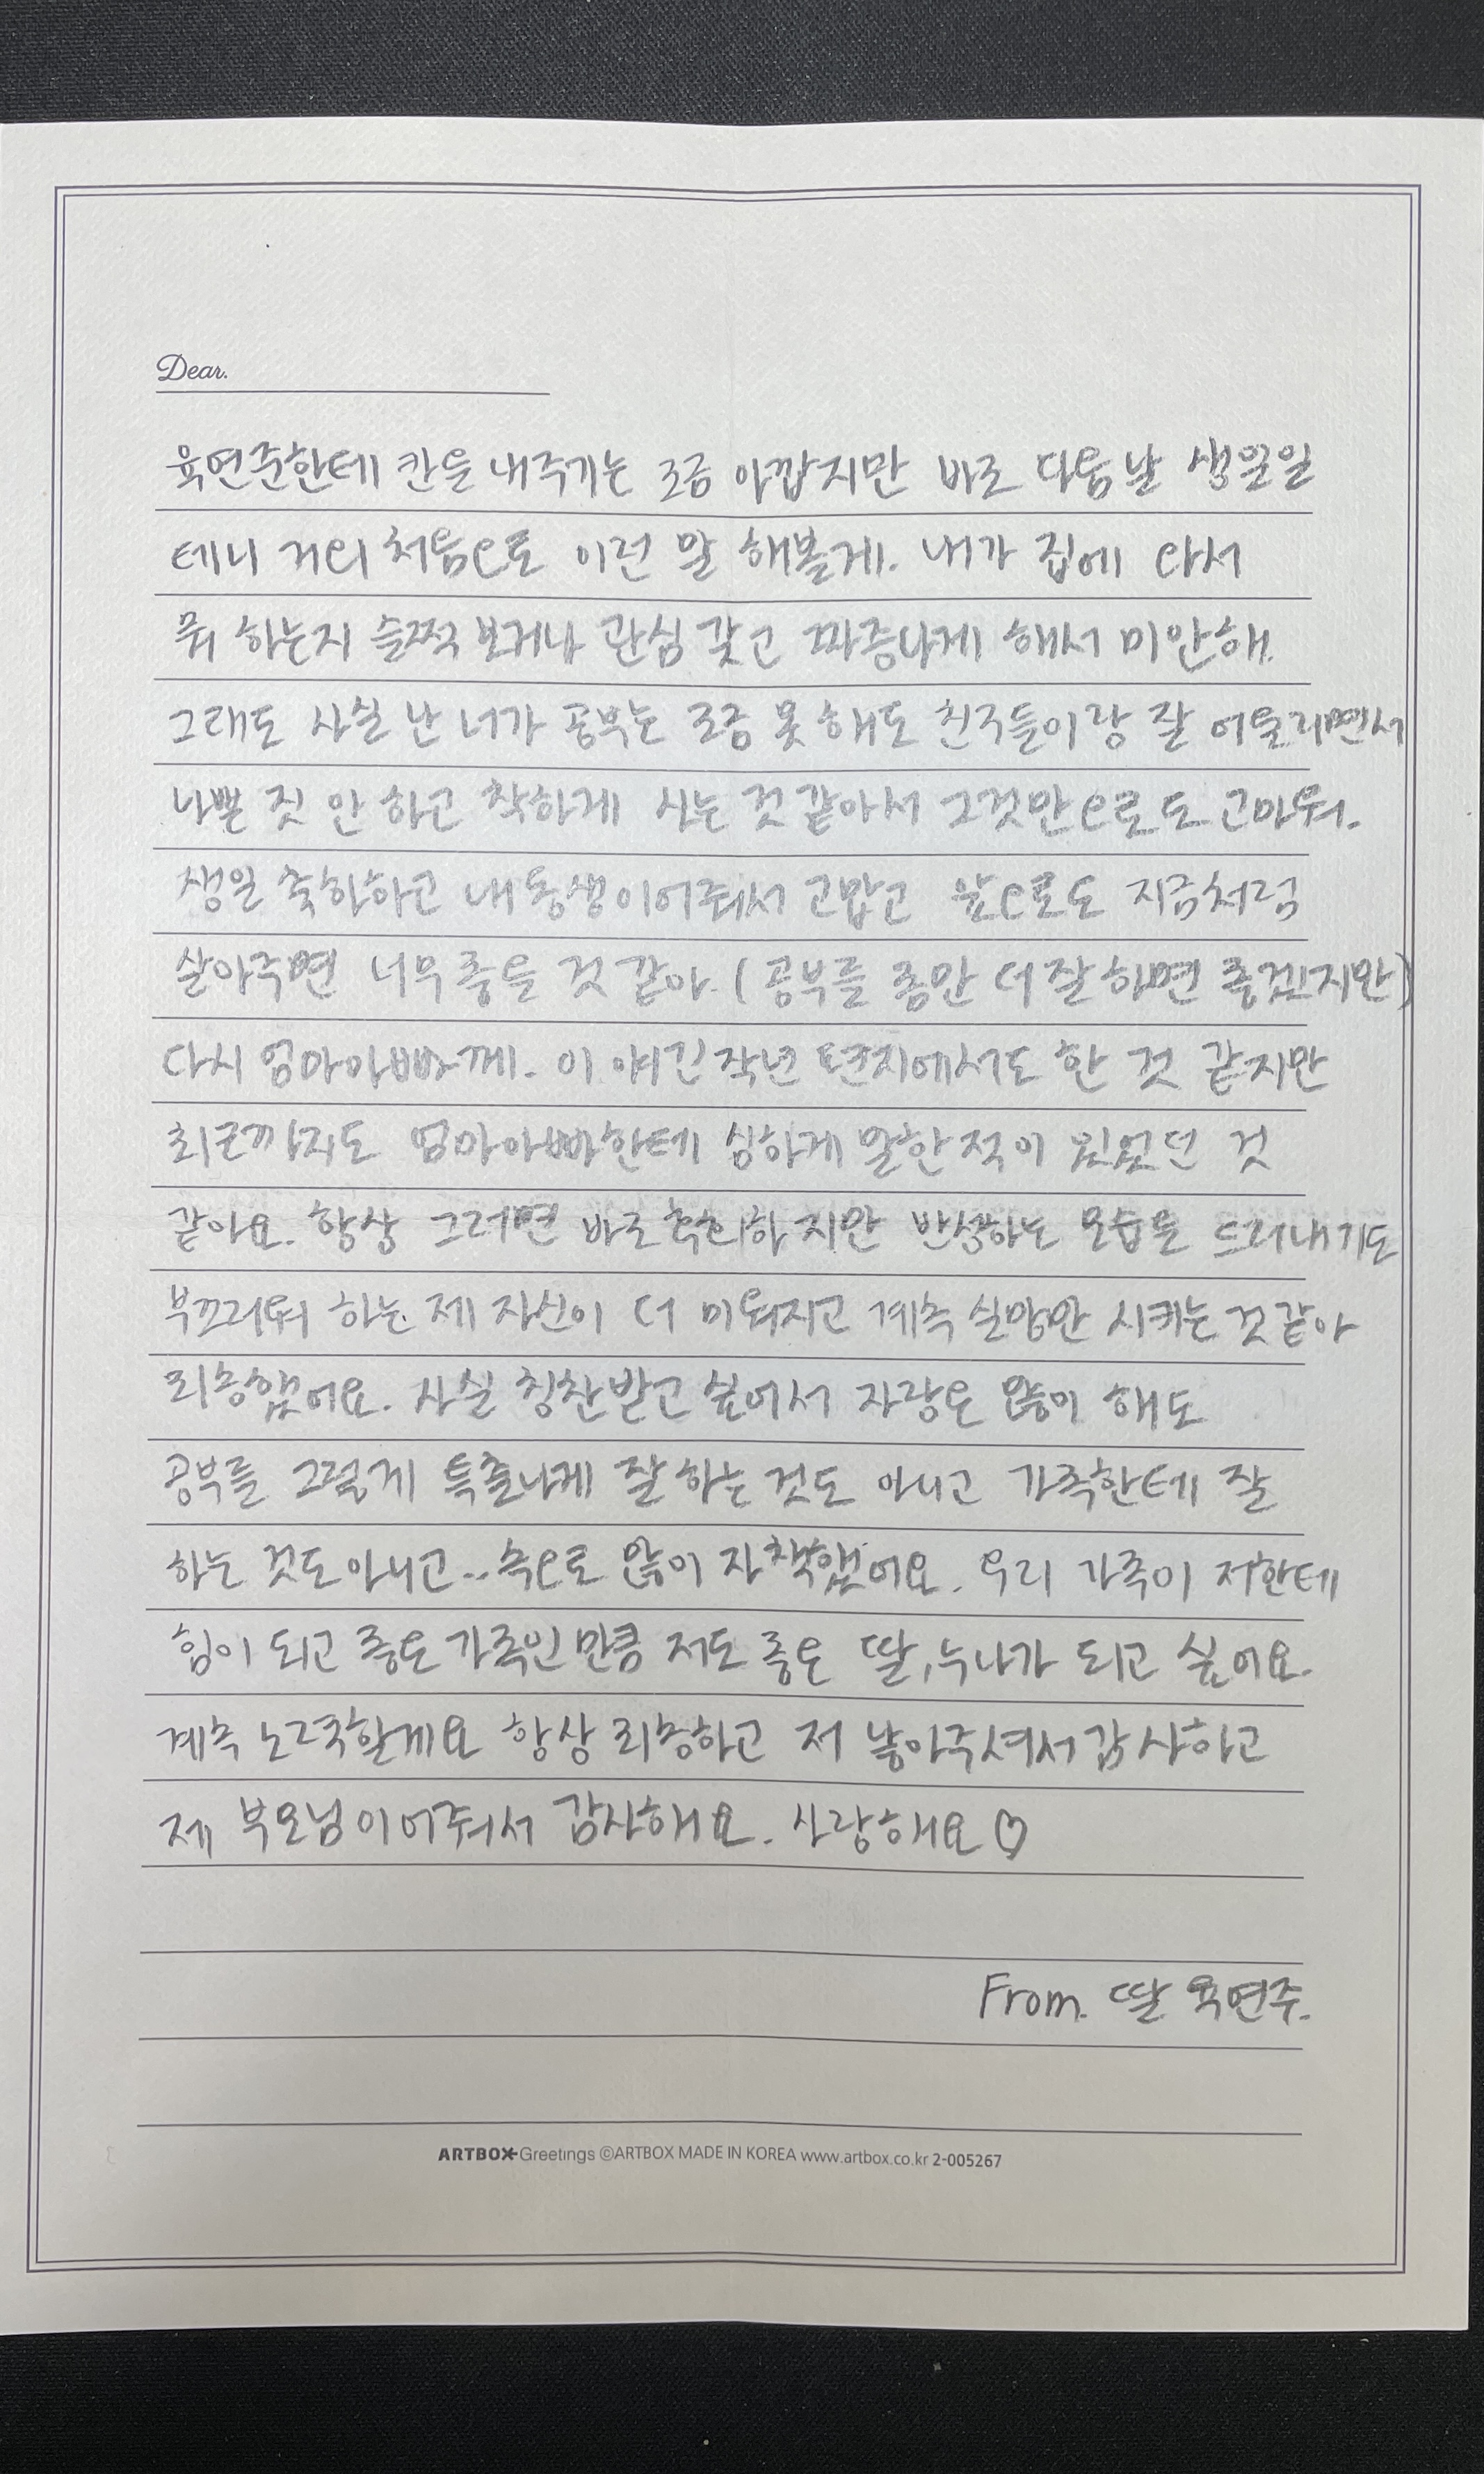 Dear.
육연준한테 칸을 내주기는 조금 아깝지만 바로 다음날 생일일
테니 거의 처음으로 이런 말 해볼게. 내가 집에 와서
뭐 하는지 슬쩍 보거나 관심 갖고 짜증나게 해서 미안해.
그래도 사실 난 너가 공부는 조금 못 해도 친구들이랑 잘 어울리면서
나쁜 짓 안 하고 착하게 사는 것 같아서 그것만으로도 고마워.
생일 축하하고 내 동생이어줘서 고맙고 앞으로도 지금처럼
살아주면 너무 좋을 것 같아. (공부를 좀만 더 잘 하면 좋겠지만)
다시 엄마아빠께. 이 얘긴 작년 편지에서도 한 것 같지만
최근까지도 엄마아빠한테 심하게 말한 적이 있었던 것
같아요. 항상 그러면 바로 후회하지만 반성하는 모습을 드러내기도
부끄러워 하는 제 자신이 더 미워지고 계속 실망만 시키는 것 같아
죄송했어요. 사실 칭찬받고 싶어서 자랑은 많이 해도
공부를 그렇게 특출나게 잘 하는 것도 아니고 가족한테 잘
하는 것도 아니고.. 속으로 많이 자책했어요. 우리 가족이 저한테
힘이 되고 좋은 가족인 만큼 저도 좋은 딸, 누나가 되고 싶어요.
계속 노력할게요 항상 죄송하고 저 낳아주셔서 감사하고
제 부모님이어줘서 감사해요. 사랑해요♡
From. 딸 육연주.
ARTBOX Greetings ©ARTBOX MADE IN KOREA www.artbox.co.kr 2-005267